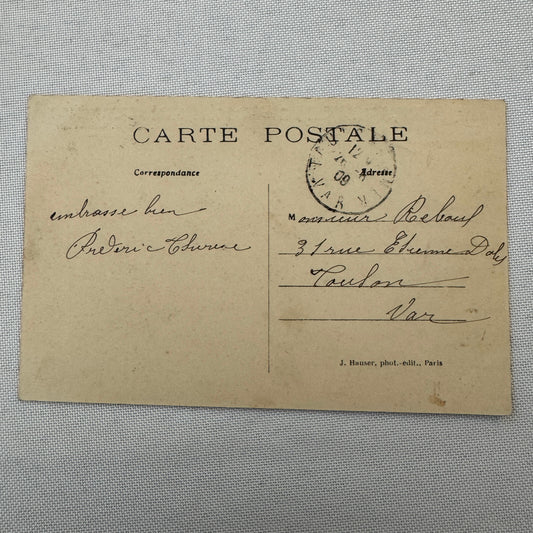 CARTE POSTALE
Correspondance
Adresse
embrasse bien
Frédéric
Monsieur Reboul
31 rue Etienne
Toulon
Var
J. Hauser, phot.-edit., Paris
12
09
VAR